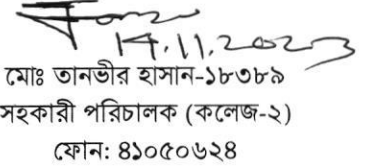 14.11.2023
মোঃ তানভীর হাসান-১৮৩৮৯
সহকারী পরিচালক (কলেজ-২)
ফোন: ৪১০৫০৬২৪